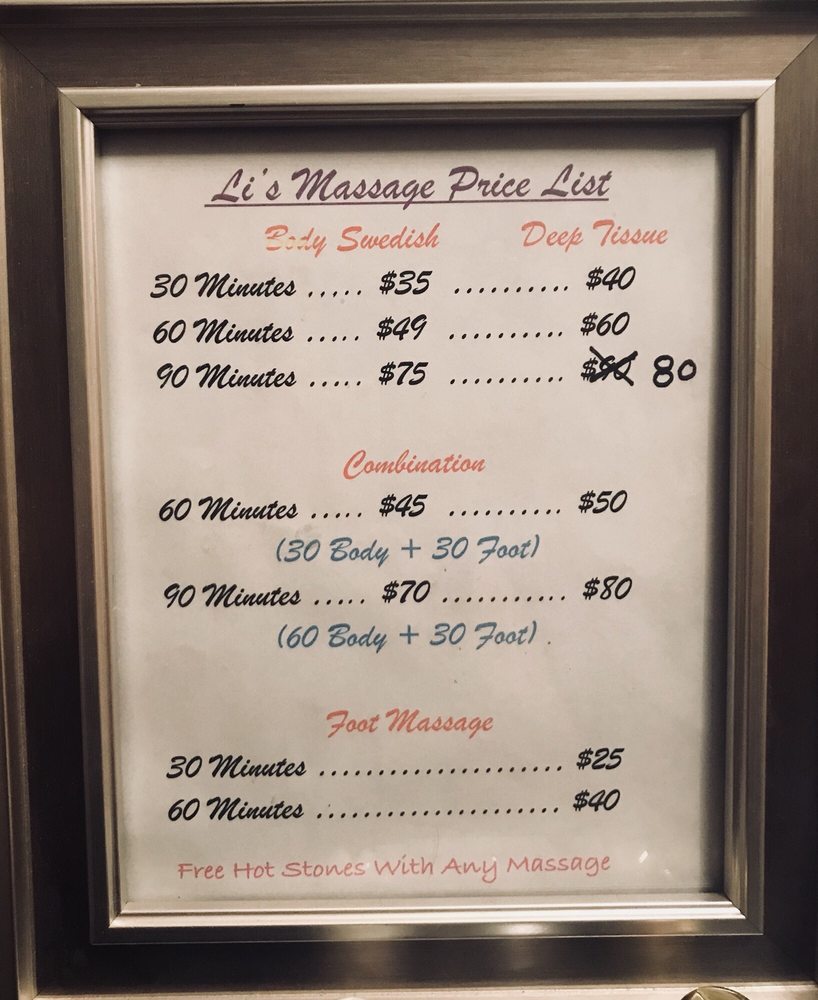 Li's Massage Price List
Body Swedish Deep Tissue
30 Minutes ..... $35 .......... $40
60 Minutes ..... $49 .......... $60
90 Minutes ..... $75 .......... $90 80
Combination
60 Minutes ..... $45 .......... $50
(30 Body + 30 Foot)
90 Minutes ..... $70 ........... $80
(60 Body + 30 Foot)
Foot Massage
30 Minutes ..................... $25
60 Minutes ..................... $40
Free Hot Stones With Any Massage